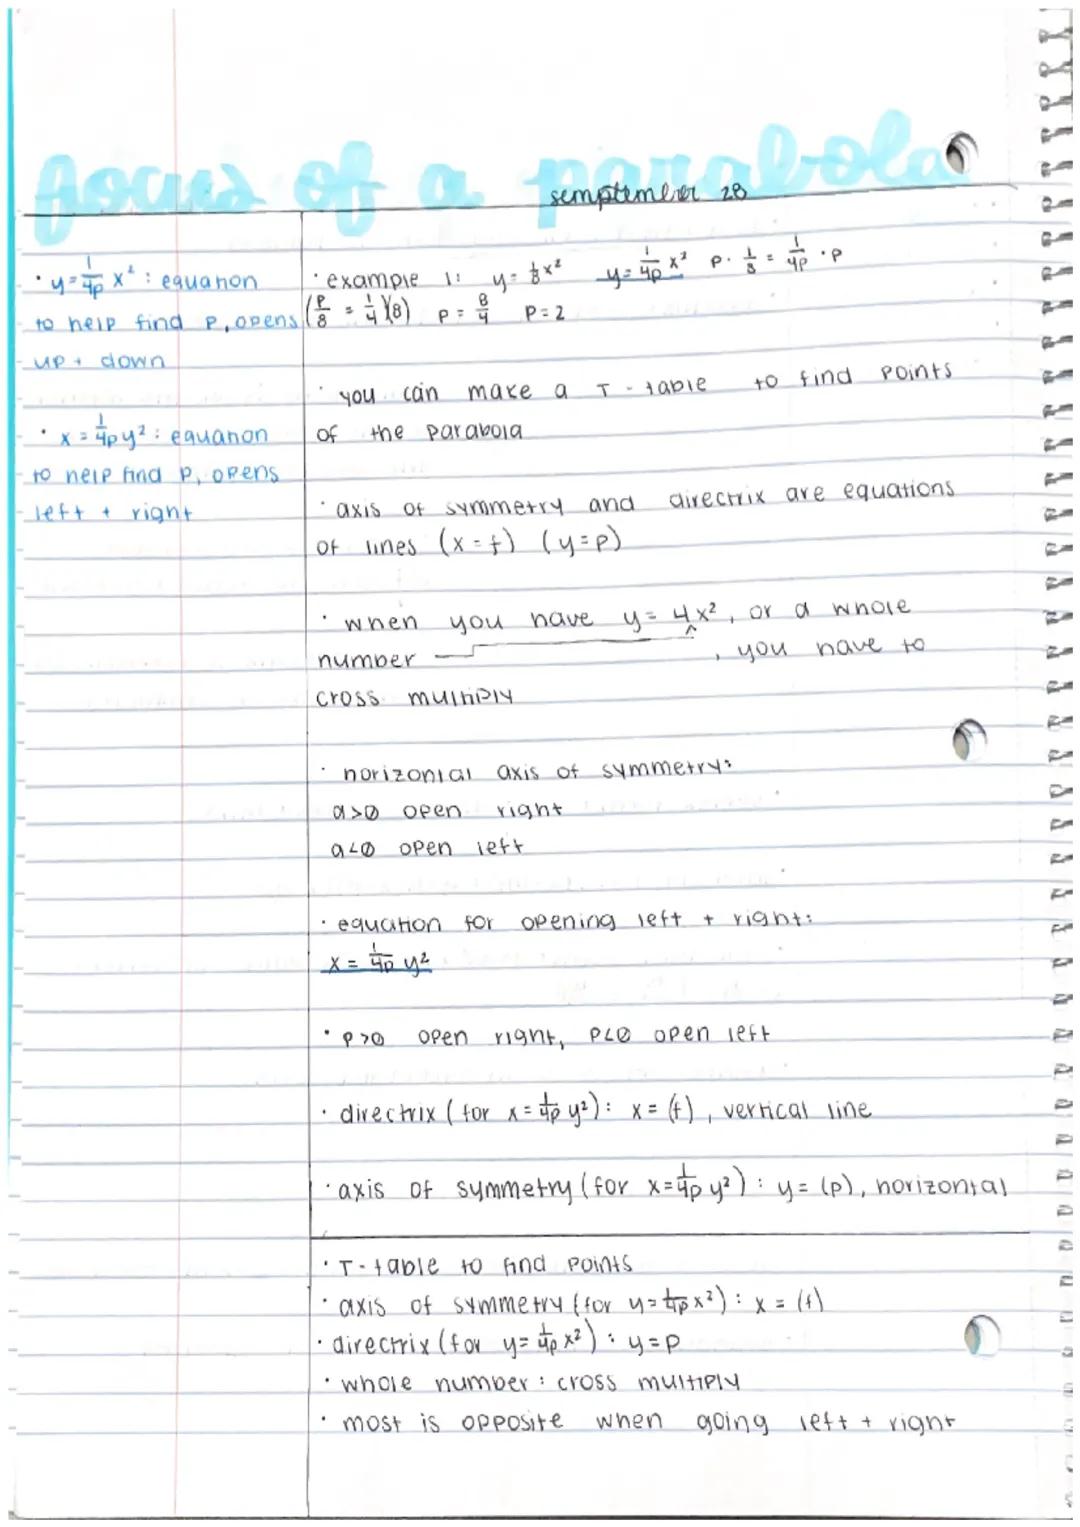 focus of a parabola
semptember 28
· y = 1/4p x² : equation
to help find p, opens
up + down
· x = 1/4p y² : equation
to help find p, opens
left + right
· example 1: y = 1/8 x² y = 1/4p x² p · 1/8 = 1/4p · p
(p/8 = 1/4)(8) p = 8/4 p = 2
· you can make a T-table to find points
of the parabola
· axis of symmetry and directrix are equations
of lines (x = f) (y = p)
· when you have y = 4x², or a whole
number , you have to
cross multiply
· horizontal axis of symmetry:
a>0 open right
a<0 open left
· equation for opening left + right:
x = 1/4p y²
· p>0 open right, p<0 open left
· directrix (for x = 1/4p y²) : x = (f), vertical line
· axis of symmetry (for x = 1/4p y²) : y = (p), horizontal
· T-table to find points
· axis of symmetry (for y = 1/4p x²) : x = (f)
· directrix (for y = 1/4p x²) : y = p
· whole number : cross multiply
· most is opposite when going left + right